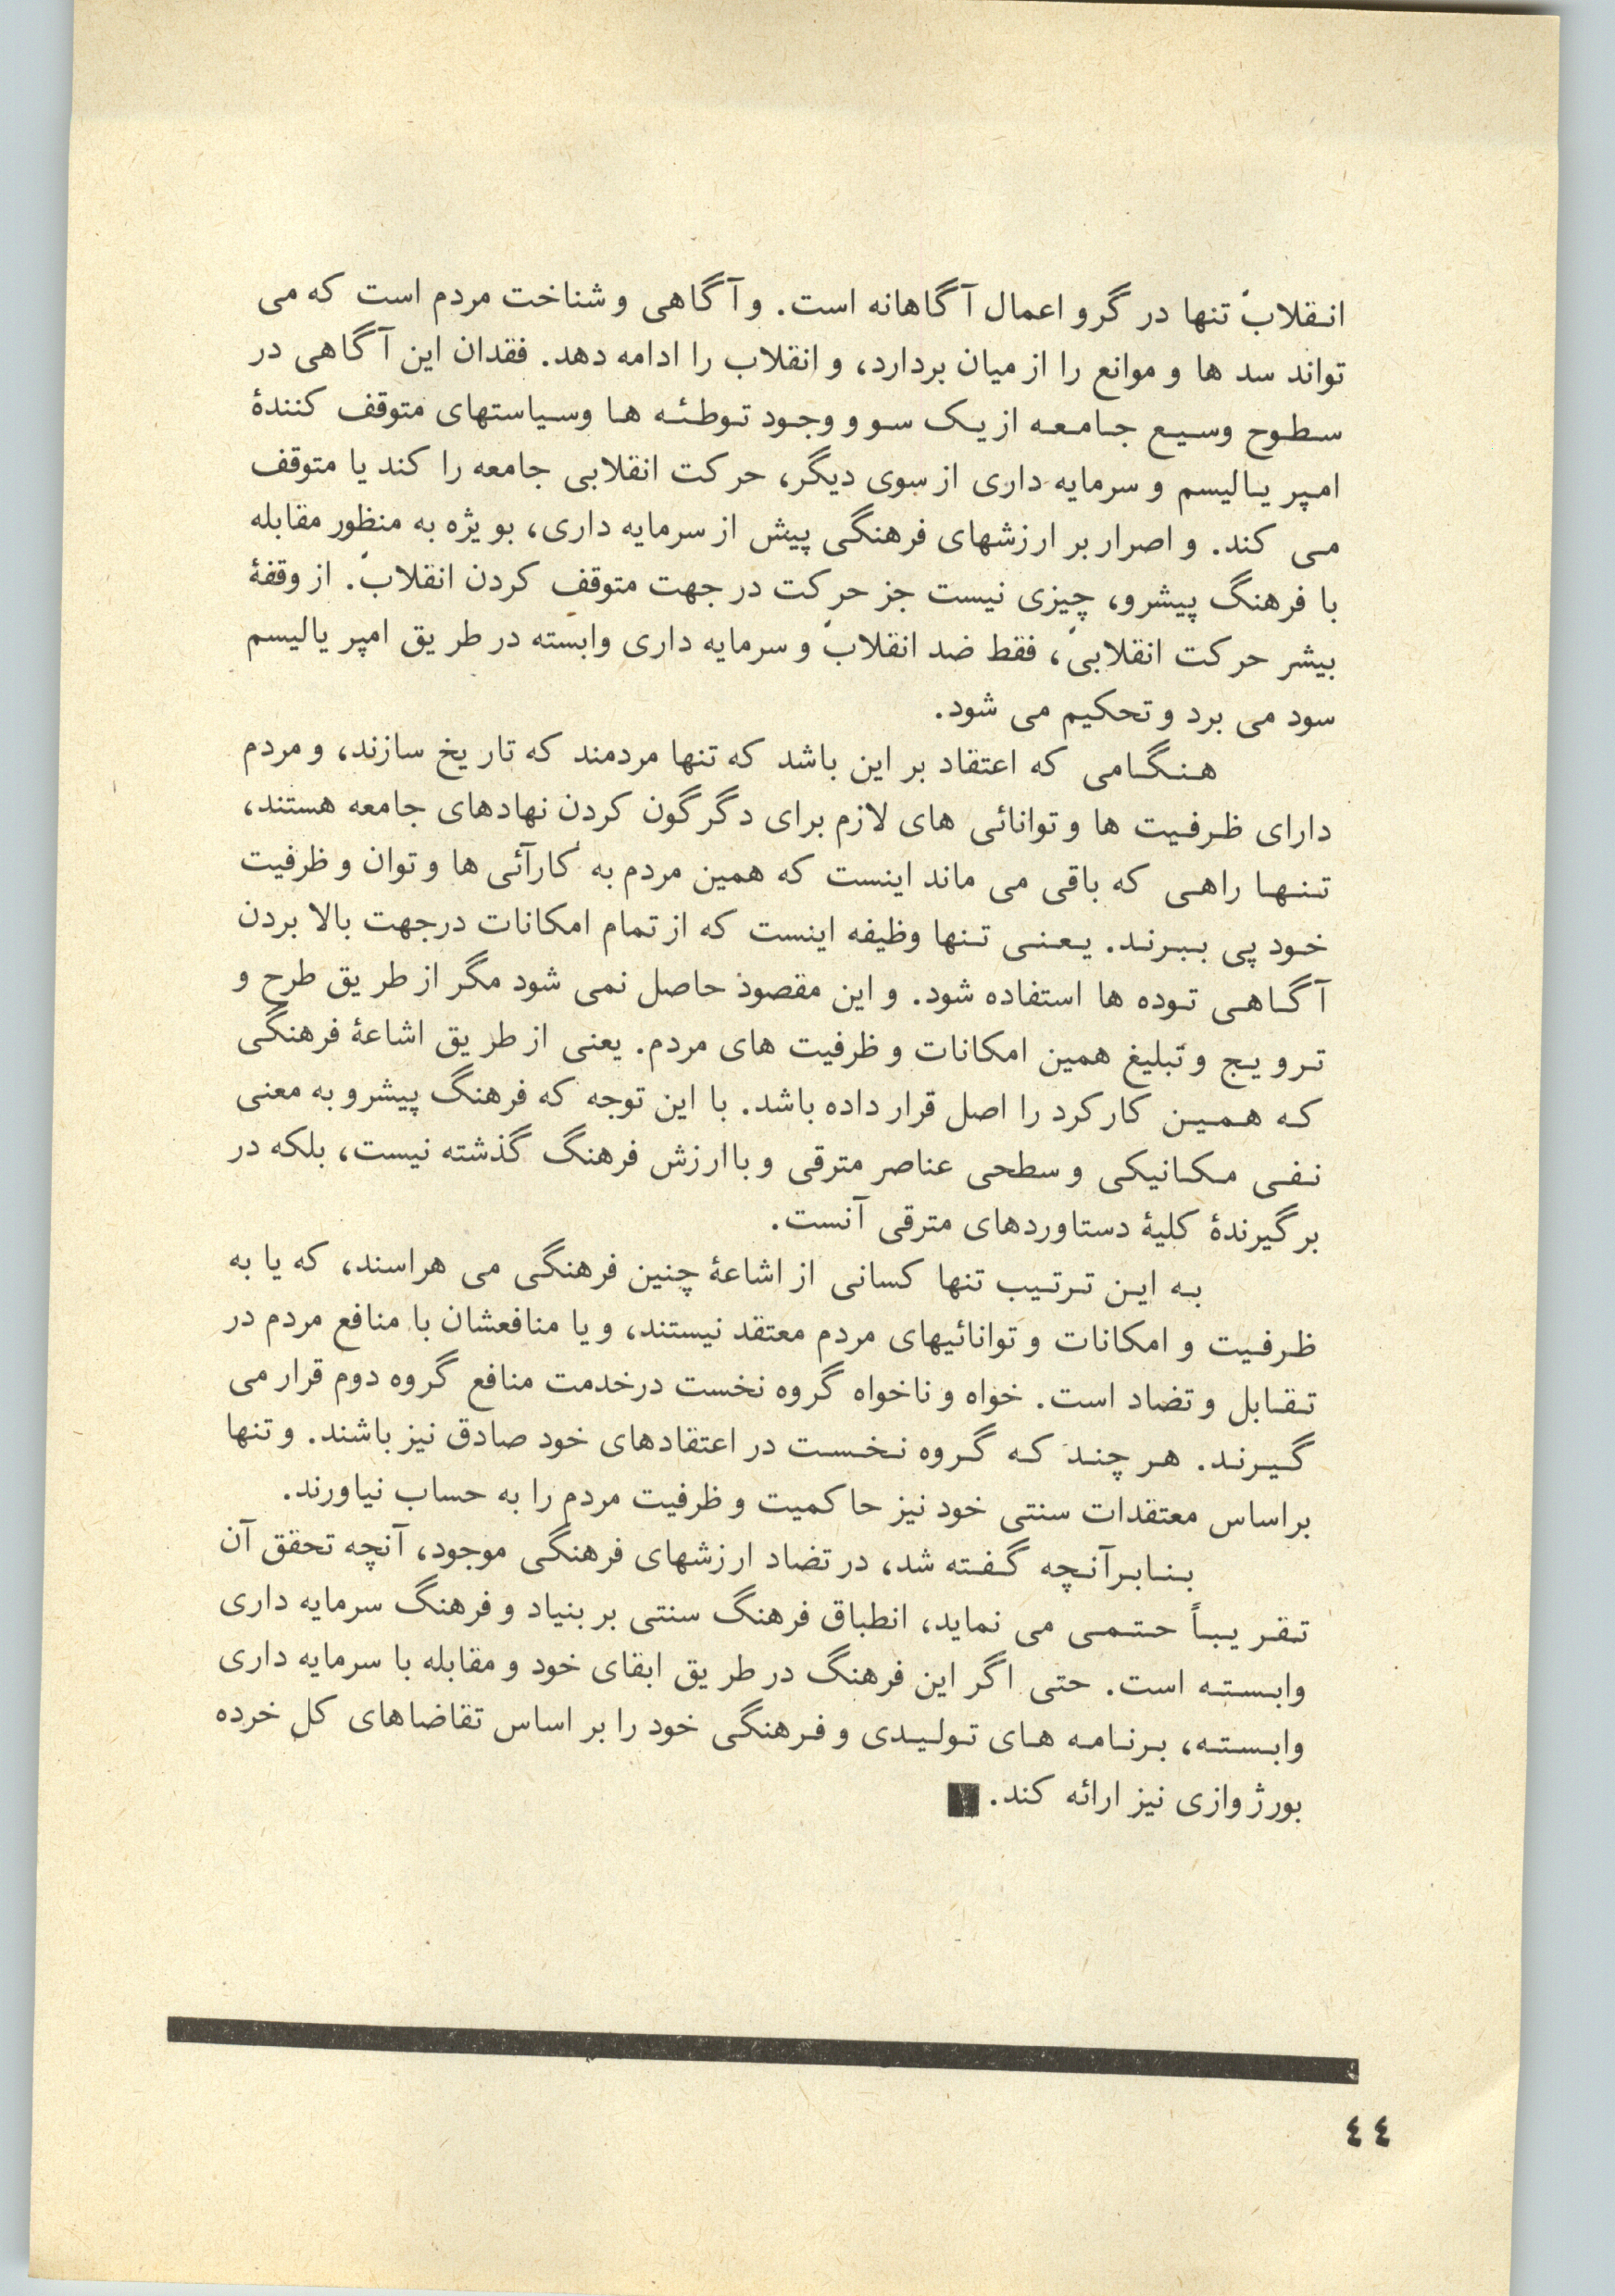 انقلاب تنها در گرو اعمال آگاهانه است. و آگاهی و شناخت مردم است که می
تواند سد ها و موانع را از میان بردارد، و انقلاب را ادامه دهد. فقدان این آگاهی در
سطوح وسیع جامعه از یک سو و وجود توطئه ها وسیاستهای متوقف کنندهٔ
امپریالیسم و سرمایه داری از سوی دیگر، حرکت انقلابی جامعه را کند یا متوقف
می کند. و اصرار بر ارزشهای فرهنگی پیش از سرمایه داری، بویژه به منظور مقابله
با فرهنگ پیشرو، چیزی نیست جز حرکت در جهت متوقف کردن انقلاب. از وقفهٔ
بیشر حرکت انقلابی، فقط ضد انقلاب و سرمایه داری وابسته در طریق امپریالیسم
سود می برد و تحکیم می شود.
هنگامی که اعتقاد بر این باشد که تنها مردمند که تاریخ سازند، و مردم
دارای ظرفیت ها و توانائی های لازم برای دگرگون کردن نهادهای جامعه هستند،
تنها راهی که باقی می ماند اینست که همین مردم به کارآئی ها و توان و ظرفیت
خود پی ببرند. یعنی تنها وظیفه اینست که از تمام امکانات درجهت بالا بردن
آگاهی توده ها استفاده شود. و این مقصوذ حاصل نمی شود مگر از طریق طرح و
ترویج و تبلیغ همین امکانات و ظرفیت های مردم. یعنی از طریق اشاعهٔ فرهنگی
که همین کارکرد را اصل قرار داده باشد. با این توجه که فرهنگ پیشرو به معنی
نفی مکانیکی و سطحی عناصر مترقی و باارزش فرهنگ گذشته نیست، بلکه در
برگیرندهٔ کلیهٔ دستاوردهای مترقی آنست.
به این ترتیب تنها کسانی از اشاعهٔ چنین فرهنگی می هراسند، که یا به
ظرفیت و امکانات و توانائیهای مردم معتقد نیستند، و یا منافعشان با منافع مردم در
تقابل و تضاد است. خواه و ناخواه گروه نخست درخدمت منافع گروه دوم قرار می
گیرند. هر چند که گروه نخست در اعتقادهای خود صادق نیز باشند. و تنها
براساس معتقدات سنتی خود نیز حاکمیت و ظرفیت مردم را به حساب نیاورند.
بنابرآنچه گفته شد، در تضاد ارزشهای فرهنگی موجود، آنچه تحقق آن
تقریباً حتمی می نماید، انطباق فرهنگ سنتی بر بنیاد و فرهنگ سرمایه داری
وابسته است. حتی اگر این فرهنگ در طریق ابقای خود و مقابله با سرمایه داری
وابسته، برنامه های تولیدی و فرهنگی خود را بر اساس تقاضاهای کل خرده
بورژوازی نیز ارائه کند.
٤٤